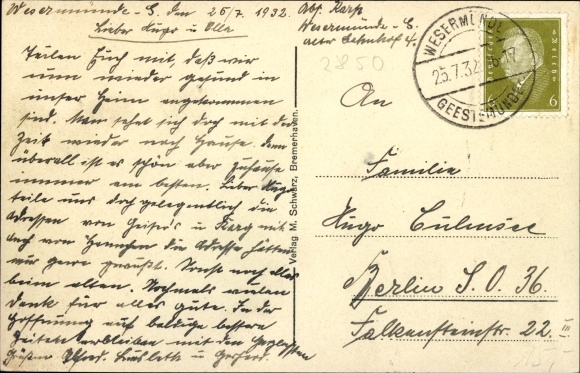 Wesermünde-G. den 25/7. 1932.
Lieber Hugo u Ella
Teilen Euch mit, daß wir
nun wieder gesund in
unser Heim angekommen
sind. Man sehnt sich doch mit der
Zeit wieder nach Hause, denn
überall ist es schön aber Zuhause
immer am besten. Lieber Hugo
teile uns doch gelegentlich die
Adressen von u. mit
auch von die Adresse hätten
wir gern gewußt. Sonst noch alles
beim alten. Nochmals vielen
Dank für alles gute. In der
Hoffnung auf baldige bessere
Zeiten verbleiben mit den
Grüßen Alfred, u Gerhard.
Abs. Karp
Wesermünde-G.
alter Bahnhof 4.
2850
WESERMÜNDE
25.7.32. -17
GEESTEMÜNDE
6
Verlag M. Schwarz, Bremerhaven.
An
Familie
Hugo Culmsee
Berlin S.O. 36.
Falkensteinstr. 22 III